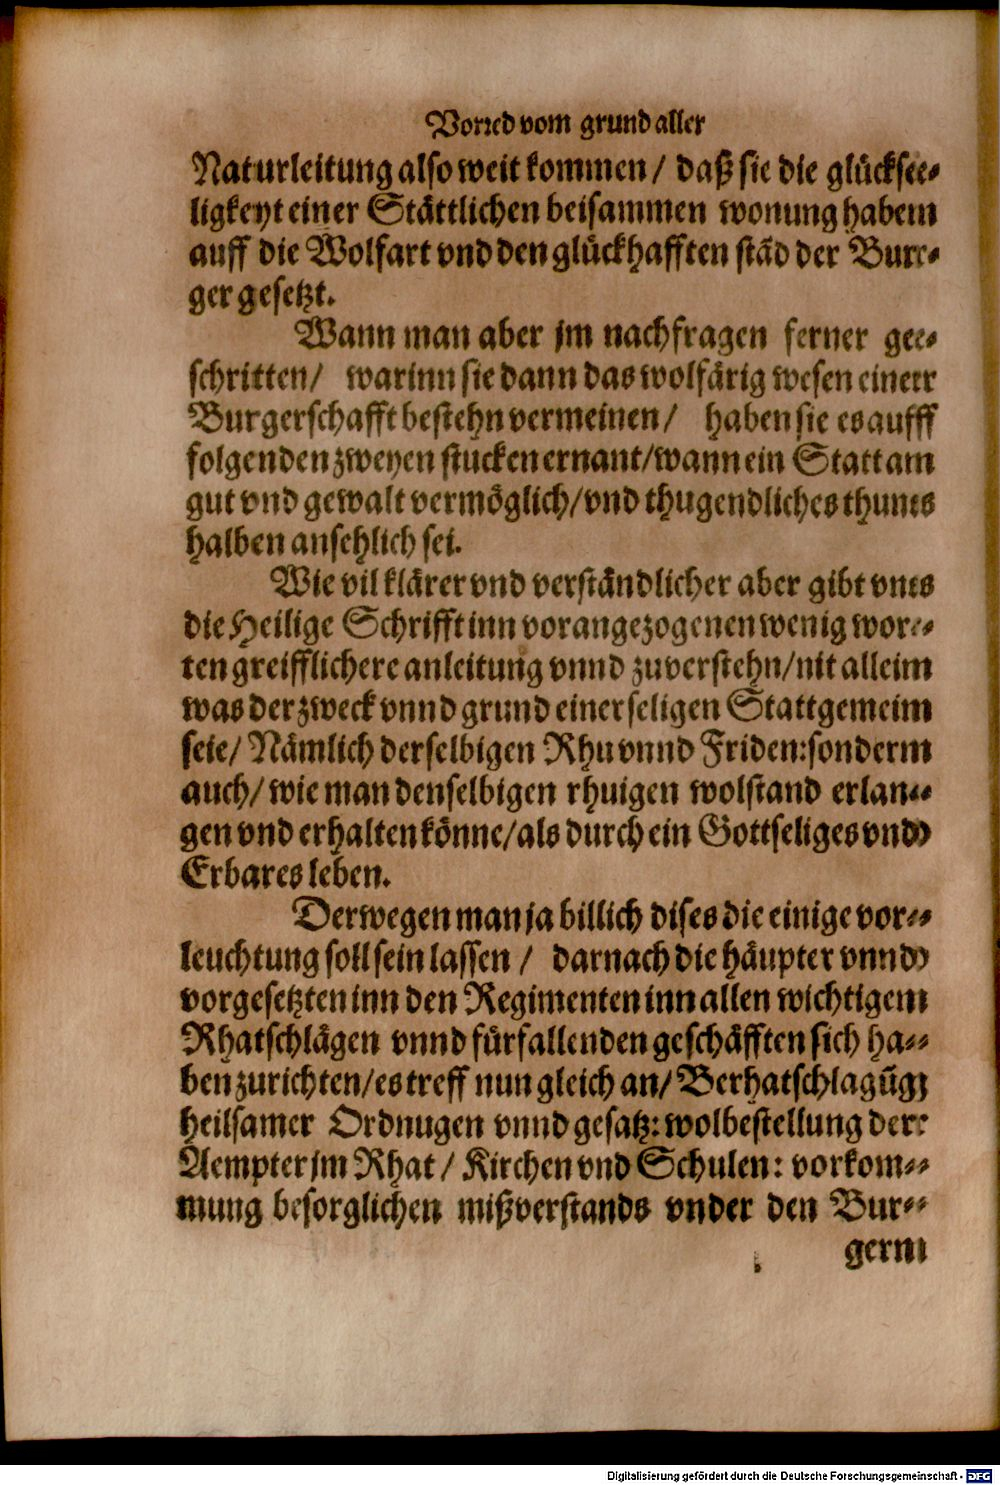 Vorred vom grund aller
Naturleitung also weit kommen / daß sie die glücksee⸗
ligkeyt einer Stättlichen beisammen wonung haben
auff die Wolfart vnd den glückhafften städ der Bur⸗
ger gesetzt.
Wann man aber jm nachfragen ferner ge⸗
schritten / warinn sie dann das wolfärig wesen einer
Burgerschafft bestehn vermeinen / haben sie es auff
folgenden zweyen stucken ernant / wann ein Statt am
gut vnd gewalt vermöglich / vnd thugendliches thuns
halben ansehlich sei.
Wie vil klärer vnd verständlicher aber gibt vns
die Heilige Schrifft inn vorangezogenen wenig wor⸗
ten greifflichere anleitung vnnd zuverstehn / nit allein
was der zweck vnnd grund einer seligen Stattgemein
seie / Nämlich derselbigen Rhu vnnd Friden: sondern
auch / wie man denselbigen rhuigen wolstand erlan⸗
gen vnd erhalten könne / als durch ein Gottseliges vnd
Erbares leben.
Derwegen man ja billich dises die einige vor⸗
leuchtung soll sein lassen / darnach die häupter vnnd
vorgesetzten inn den Regimenten inn allen wichtigen
Rhatschlägen vnnd fürfallenden geschäfften sich ha⸗
ben zurichten / es treff nun gleich an / Berhatschlagūg
heilsamer Ordnugen vnnd gesatz: wolbestellung der
Aempter jm Rhat / Kirchen vnd Schulen: vorkom⸗
mung besorglichen mißverstands vnder den Bur⸗
gern
Digitalisierung gefördert durch die Deutsche Forschungsgemeinschaft - DFG